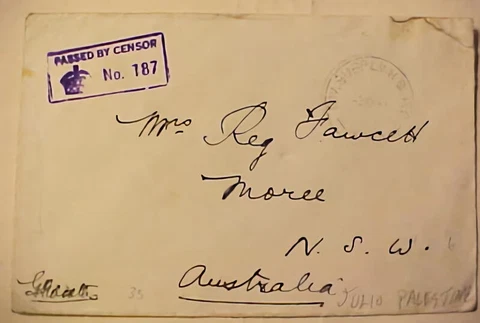 PASSED BY CENSOR
No. 187
Mrs Reg Fawcett
Moree
N. S. W.
Australia
35
PALESTINE